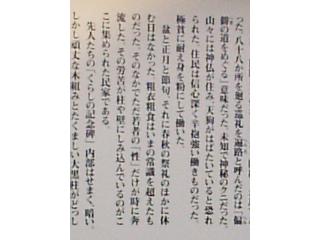 った。八十八か所を廻る巡礼を遍路と呼んだのは「偏
僻の道をめぐる」意味だった。未知で神秘のクニだった。
山々には神仏が住み、天狗がはばたいていると恐れ
られた。住民は信心深く辛抱強い働きものだった。
極貧に耐え身を粉にして働いた。
盆と正月と節句、それに春秋の祭礼のほかに休
む日はなかった。粗衣粗食はいまの常識を超えたも
のだった。そのなかでただ若者の「性」だけが時に奔
流した。その労苦が柱や壁にしみ込んでいるのがこ
こに集められた民家である。
先人たちの「くらしの記念碑」内部はせまく、暗い。
しかし頑丈な木組みとたくましい大黒柱がどっし